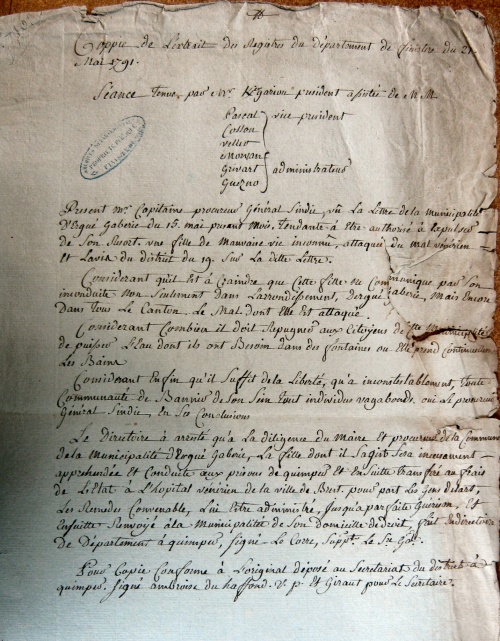 Coppie de Lextrait des Registres du département du finistere du 21
Mai 1791.
Séance Tenue, par Mr. Kgariou president assistée de M M
Pascal vice president
Cosson
Vellio
Morvan
Grivart administrateurs
Guezno
Present mr. Capitaine procureur Général Sindic, vû La Lettre de la municipalité
D'Ergué Gaberic du 15. mai present mois, Tendante à Etre authorisé à Expulser
de Son Ressort, une fille de Mauvaise vie inconnue, attaquée du mal vénérien
et Lavis du district du 19. Sur La ditte Lettre.
Considerant quil Est à Craindre que Cette fille ne Communique par Son
inconduite Non Seulement dans Larrondissement, Dergué Gaberic, Mais Encore
Dans Tous Le Canton, Le Mal dont Elle Est attaquée.
Considerant Combien il doit Repugner aux Citoyens de Cette Municipalité
de puiser L'eau dont ils ont Besoin dans des fontaines ou Elle prend Continuellement
Les Bains
Considerant Enfin qu'il Suffit de la Liberté, qu'a incontestablement, Toute
Communauté de Bannir de Son Sein Tout individus vagabonds. oui Le procureur
Général Sindic, En Ses Conclusions
Le Directoire a arrêté qu'à La diligence du Maire et procureur de la Commune
de la Municipalité d'Ergué Gaberic, La fille dont il Sagit Sera incessament
apprehendée et Conduite aux prisons de quimper et Ensuitte Transféré au frais
de L'Etat à L'hopital vénérien de la ville de Brest. pour par Les Gens de Lart,
Les Remedes Convenable, Lui Etre administré, Jusqu'a parfaite Guerison, Et
Ensuitte Renvoyé à la Municipalité de Son Domicille de droit, fait En directoire
De Département à quimper, Signé Le Corre, Supp. Le Sre. Gal.
Pour Copie Conforme à L'original déposé au Secretariat du district à
quimper. Signé ambroise du haffond. V. p. et Giraut pour Le Secretaire.